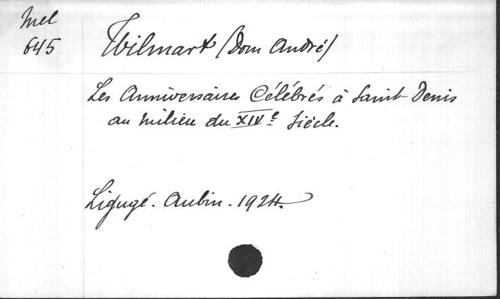 Mel
645
Wilmart (Dom André)
Les Anniversaires Célébrés à Saint-Denis
au milieu du XIVe Siècle.
Ligugé. Aubin. 1924.